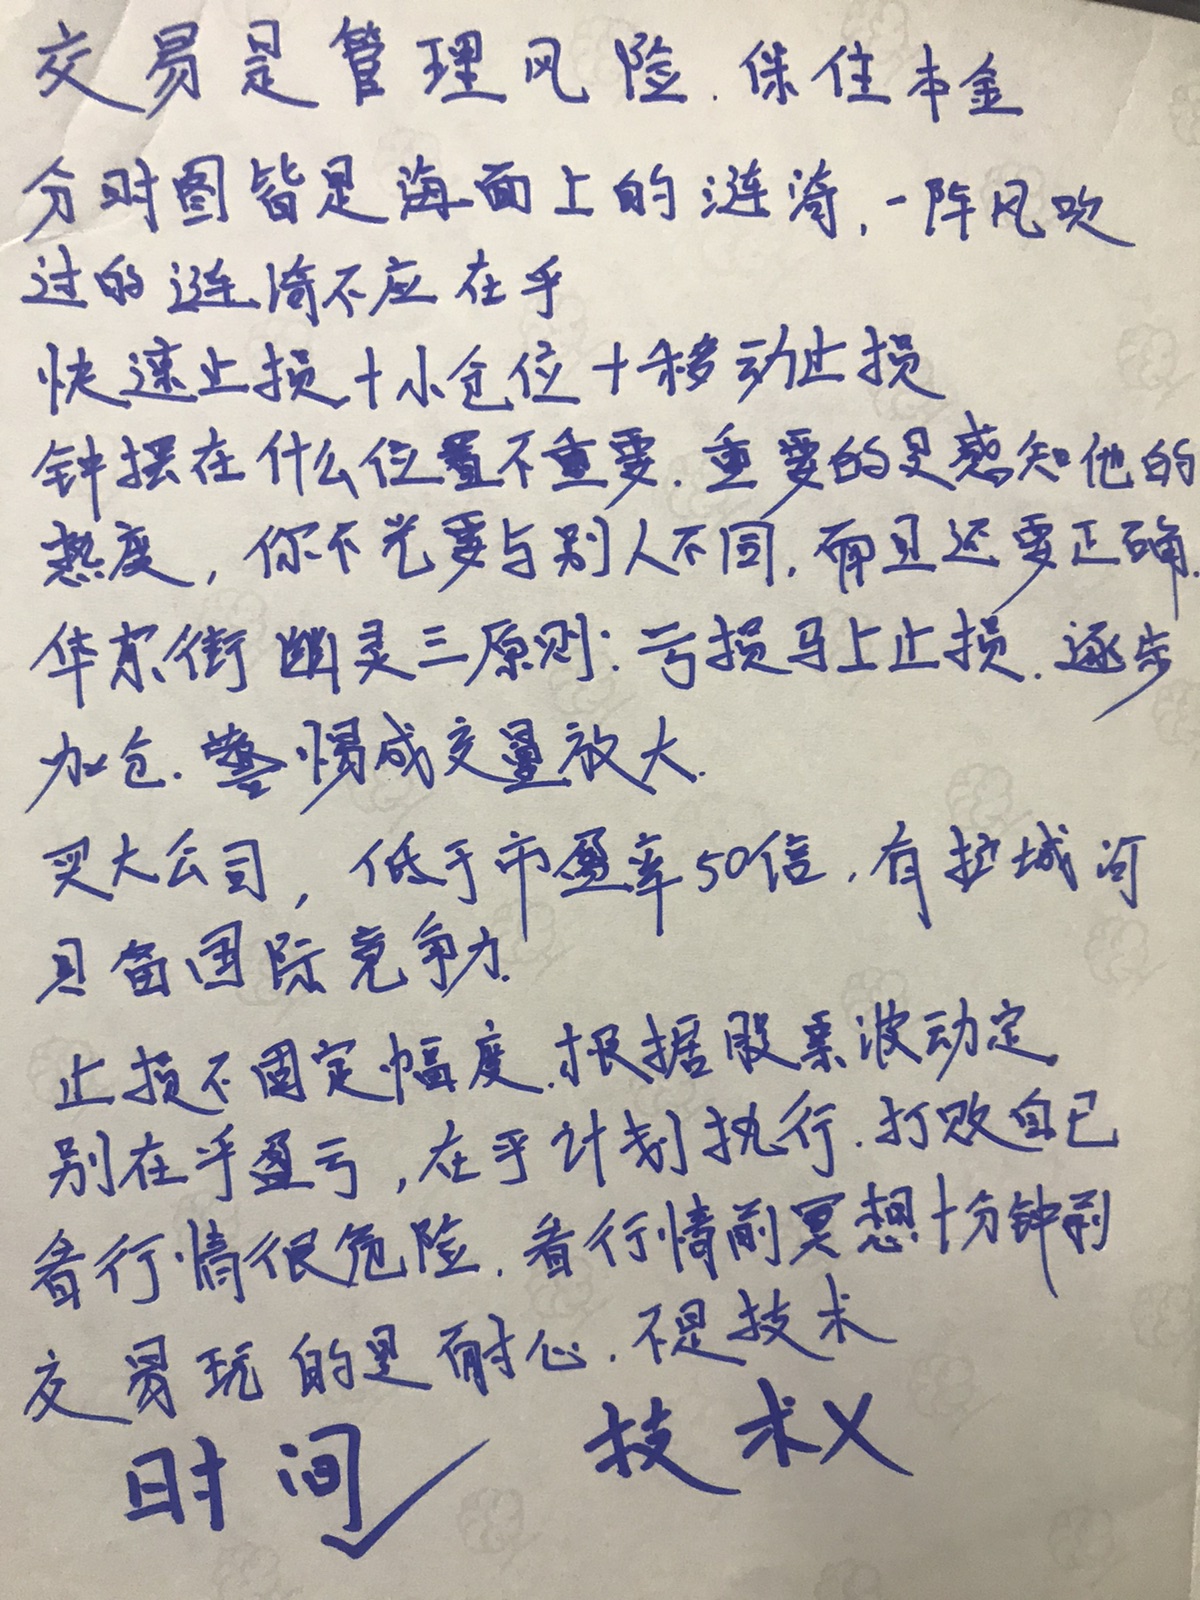 交易是管理风险.保住本金
分时图皆是海面上的涟漪,一阵风吹
过的涟漪不应在乎
快速止损+小仓位+移动止损
钟摆在什么位置不重要.重要的是感知他的
热度,你不光要与别人不同,而且还要正确.
华尔街幽灵三原则:亏损马上止损.逐步
加仓.警惕成交量放大.
买大公司,低于市盈率50倍.有护城河
具备国际竞争力.
止损不固定幅度.根据股票波动定.
别在乎盈亏,在乎计划执行.打败自己
看行情很危险.看行情前冥想十分钟前
交易玩的是耐心.不是技术
时间✓ 技术X